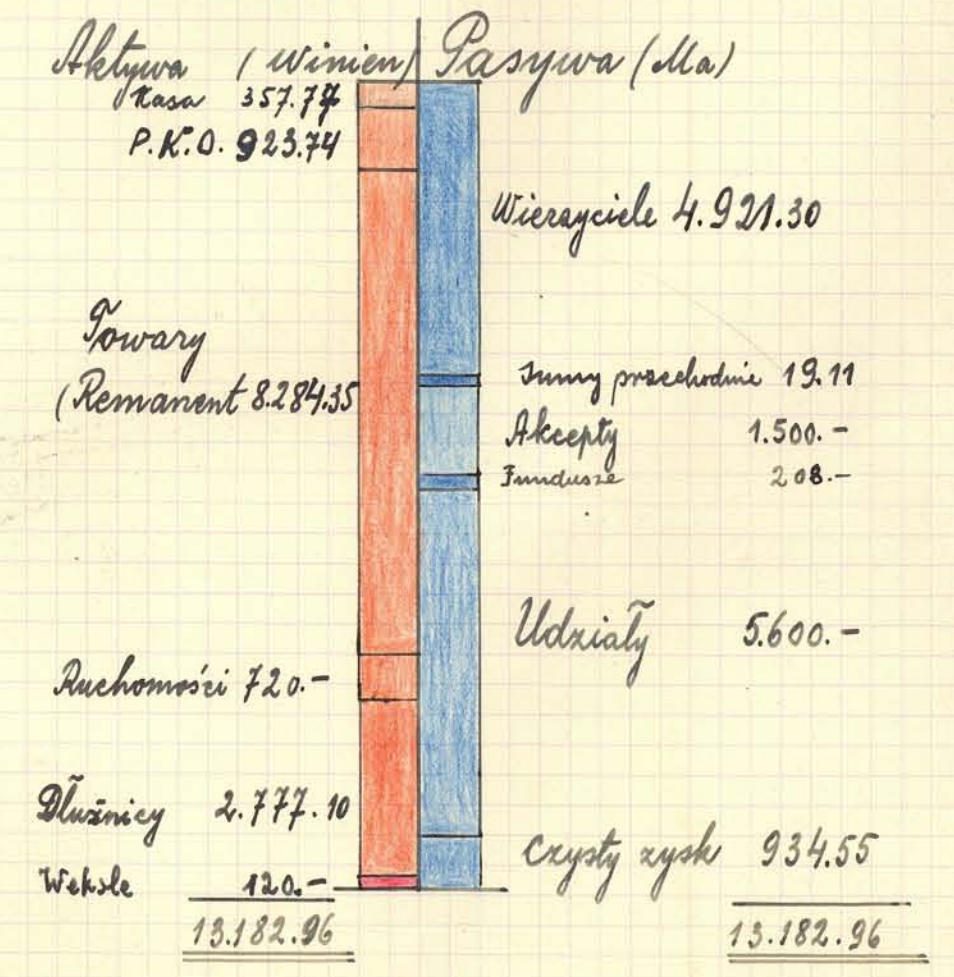 Aktywa (Winien)
Kasa 357.77
P.K.O. 923.74
Towary
(Remanent 8.284.35
Ruchomości 720.-
Dłużnicy 2.777.10
Weksle 120.-
13.182.96
Pasywa (Ma)
Wierzyciele 4.921.30
Sumy przechodnie 19.11
Akcepty 1.500.-
Fundusze 208.-
Udziały 5.600.-
Czysty zysk 934.55
13.182.96